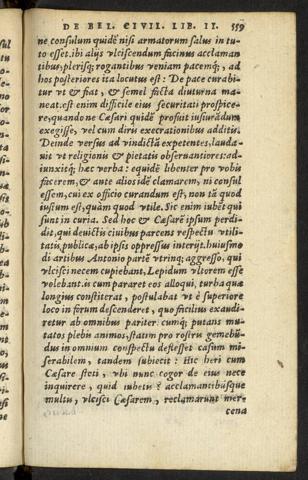 DE BEL. CIVIL. LIB. II. 559
ne consulum quidē nisi armatorum salus in tu-
to esset. ibi alijs vlciscendum facinus acclaman
tibus, plerisq; rogantibus veniam pacemq́;, ad
hos posteriores ita locutus est: De pace curabi-
tur vt & fiat, & semel facta diuturna ma-
neat. est enim difficile eius securitati prospice-
re, quando ne Cæsari quidē profuit iusiurādum
exegisse, vel cum diris execrationibus additis.
Deinde versus ad vindictā expetentes, lauda-
uit vt religionis & pietatis obseruantiores: ad-
iunxitq́; hæc verba: equidē libenter pro vobis
facerem, & ante alios idē clamarem, ni consul
essem, cui ex officio curandum est, non tā quod
iustum est, quàm quod vtile. Sic enim iubēt qui
sunt in curia. Sed hoc & Cæsarē ipsum perdi-
dit, qui deuictis ciuibus parcens respectu vtili-
tatis publicæ, ab ipsis oppressus interijt. huiusmo
di artibus Antonio partē vtrinq; aggresso, qui
vlcisci necem cupiebant, Lepidum vltorem esse
volebant. is cum pararet eos alloqui, turba quæ
longius constiterat, postulabat vt è superiore
loco in forum descenderet, quo facilius exaudi-
retur ab omnibus pariter. cumq́; putans mu-
tatos plebis animos, statim pro rostris gemebū
dus in omnium conspectu defleßet casum mi-
serabilem, tandem subiecit: Hîc heri cum
Cæsare steti, vbi nunc cogor de eius nece
inquirere, quid iubetis? acclamantibúsque
multis, vlcisci Cæsarem, reclamarunt mer-
cena